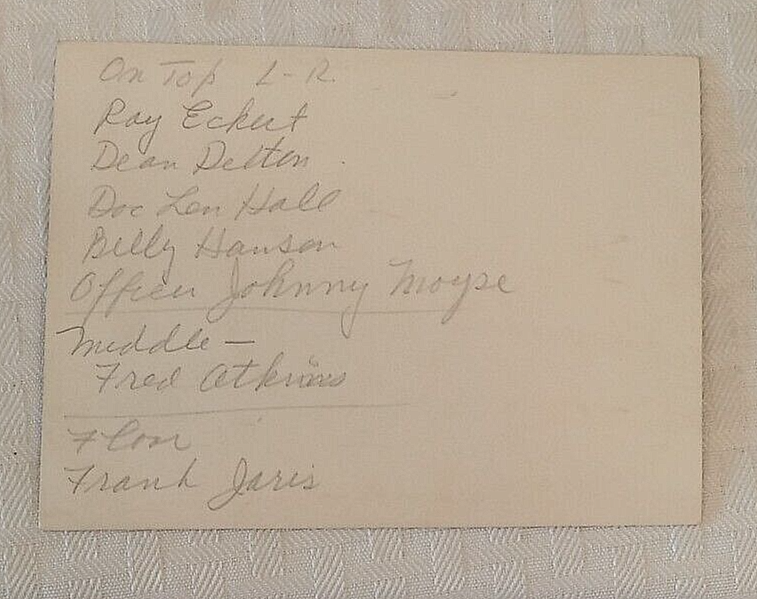 On Top L-R.
Ray Eckert
Dean Delton
Doc Len Hall
Billy Hanson
Officer Johnny Moyse
Middle —
Fred Atkins
Floor
Frank Jaris